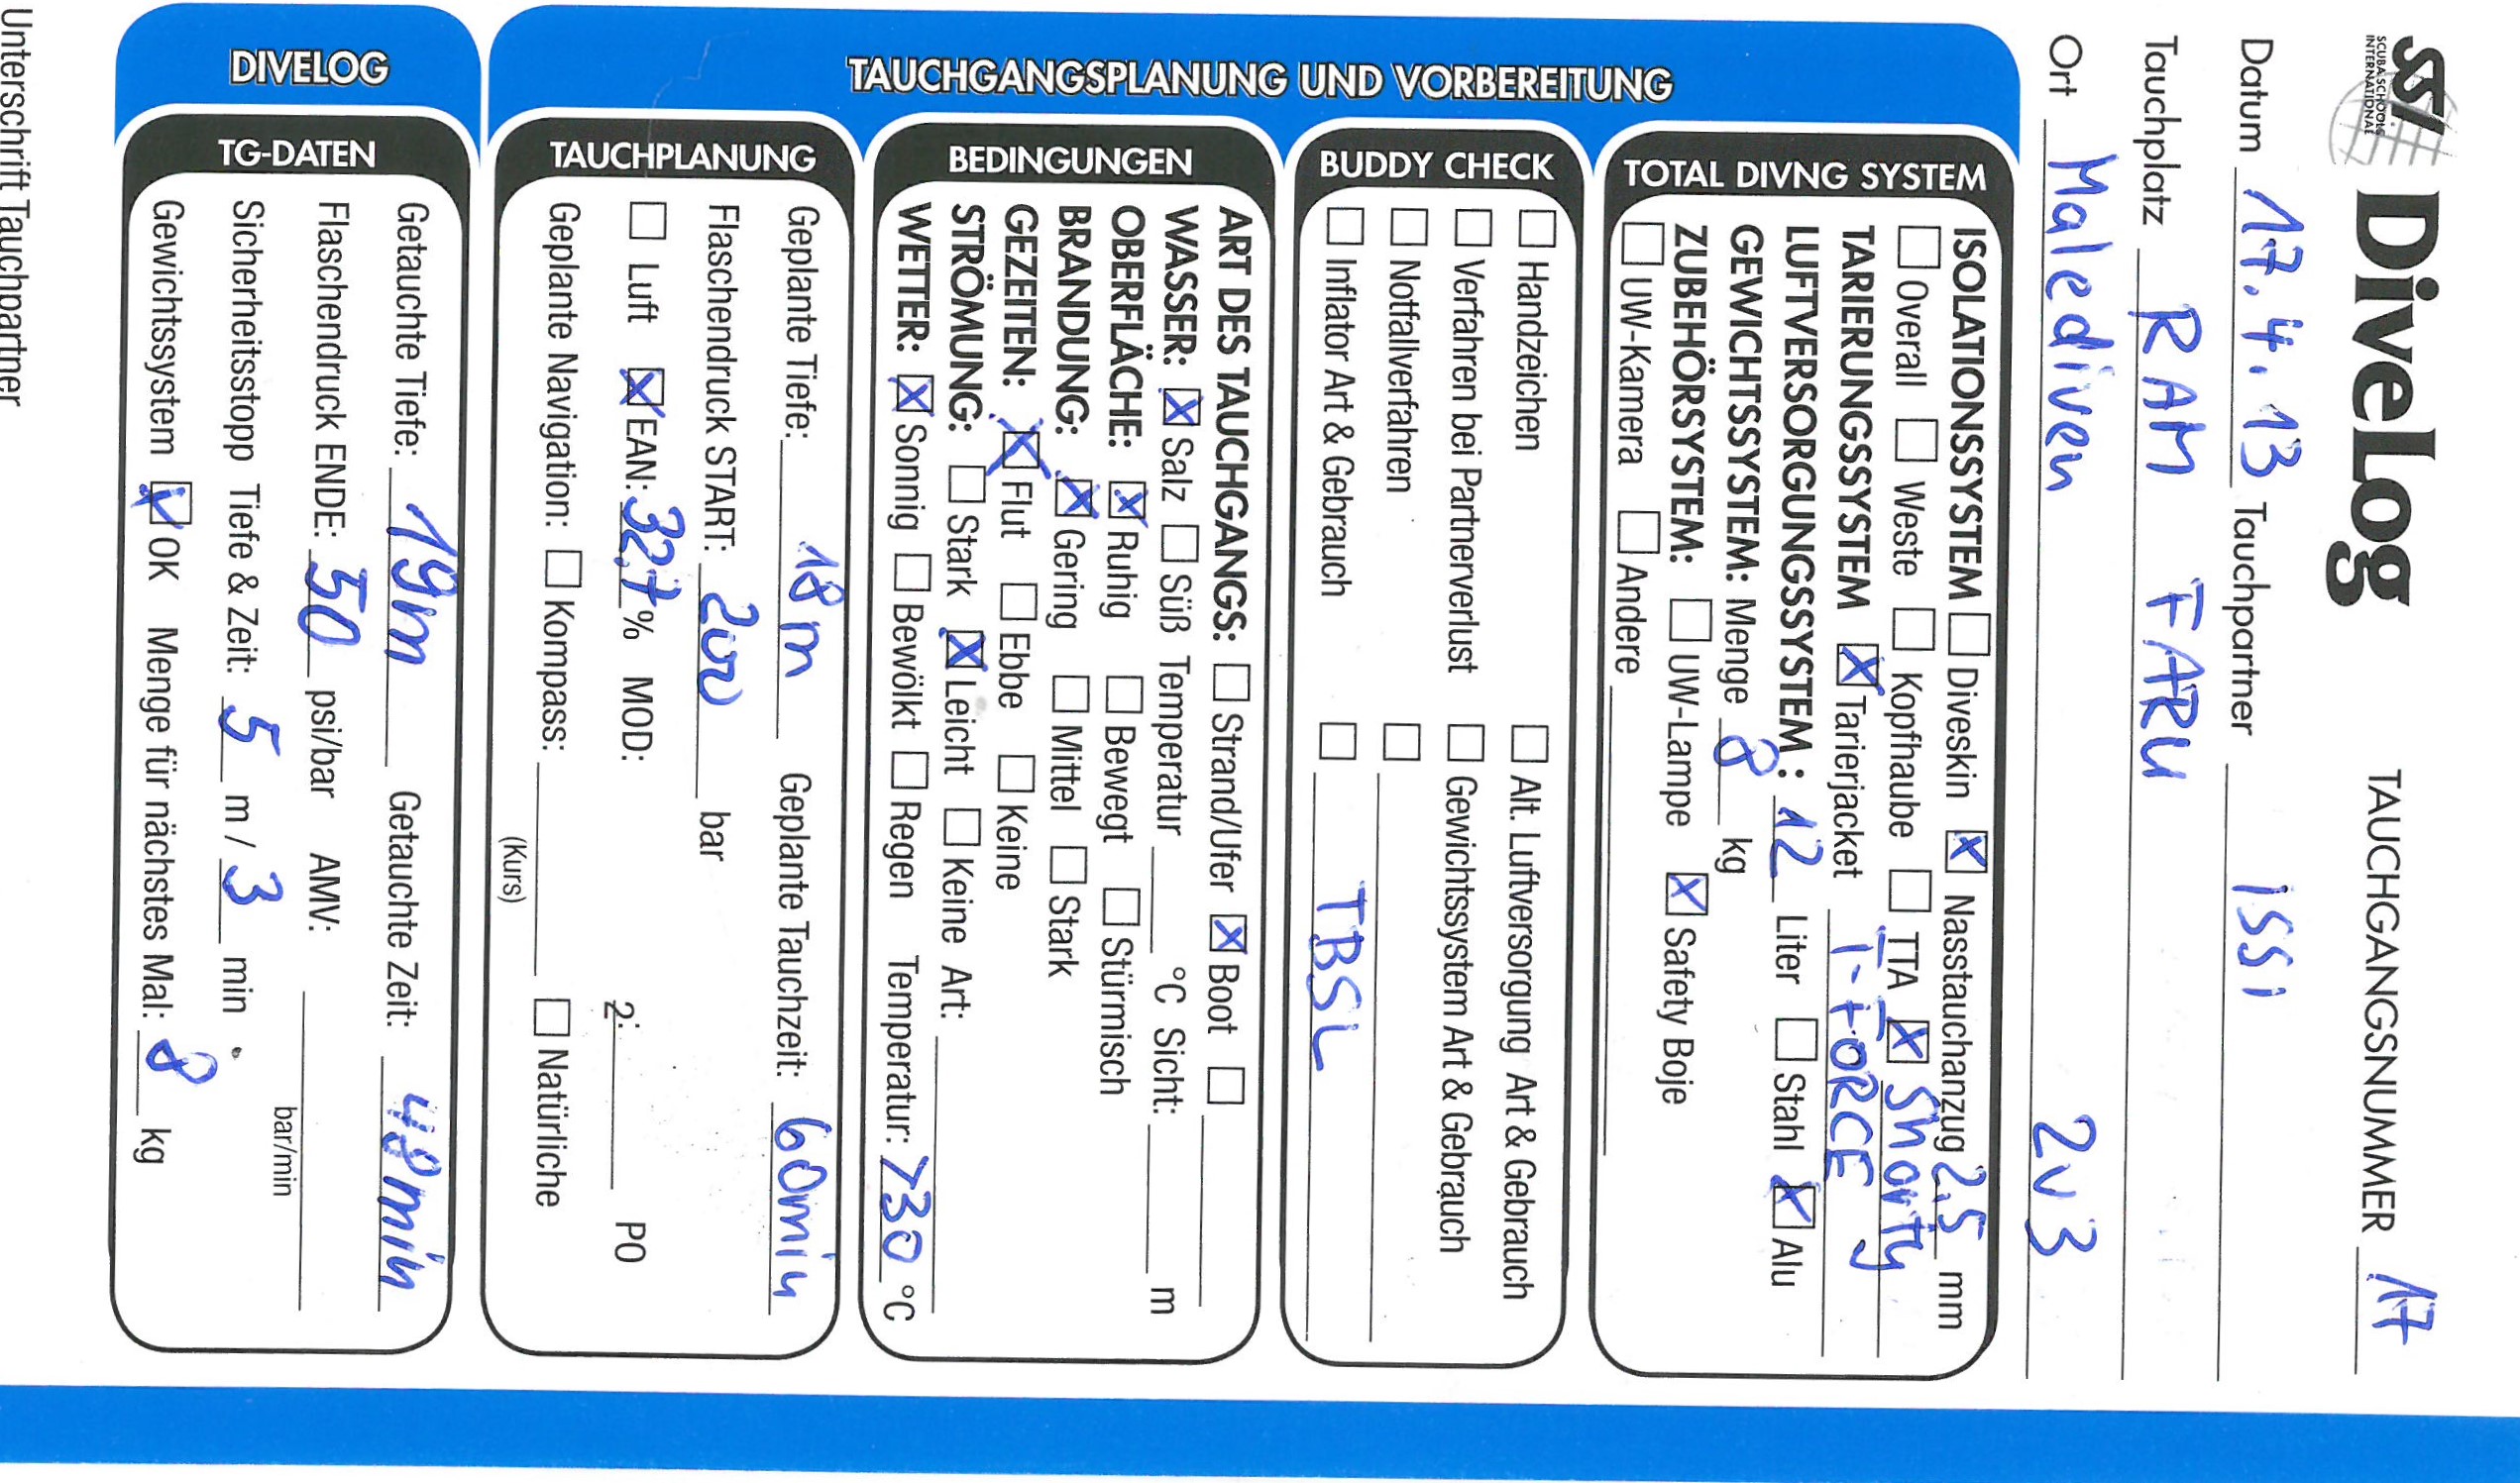 SSI
SCUBA SCHOOLS
INTERNATIONAL
DiveLog
TAUCHGANGSNUMMER 17
Datum 17.4.13 Tauchpartner ISSI
Tauchplatz RAM FARU
Ort Malediven 2v3
TAUCHGANGSPLANUNG UND VORBEREITUNG
TOTAL DIVNG SYSTEM
ISOLATIONSSYSTEM ☐ Diveskin ☒ Nasstauchanzug 2,5 mm
☐ Overall ☐ Weste ☐ Kopfhaube ☐ TTA ☒ Shorty
TARIERUNGSSYSTEM ☒ Tarierjacket I-FORCE
LUFTVERSORGUNGSSYSTEM: 12 Liter ☐ Stahl ☒ Alu
GEWICHTSSYSTEM: Menge 8 kg
ZUBEHÖRSYSTEM: ☐ UW-Lampe ☒ Safety Boje
☐ UW-Kamera ☐ Andere
BUDDY CHECK
☐ Handzeichen ☐ Alt. Luftversorgung Art & Gebrauch
☐ Verfahren bei Partnerverlust ☐ Gewichtssystem Art & Gebrauch
☐ Notfallverfahren ☐
☐ Inflator Art & Gebrauch ☐ TBSL
BEDINGUNGEN
ART DES TAUCHGANGS: ☐ Strand/Ufer ☒ Boot ☐
WASSER: ☒ Salz ☐ Süß Temperatur °C Sicht: m
OBERFLÄCHE: ☒ Ruhig ☐ Bewegt ☐ Stürmisch
BRANDUNG: ☒ Gering ☐ Mittel ☐ Stark
GEZEITEN: ☒ Flut ☐ Ebbe ☐ Keine
STRÖMUNG: ☐ Stark ☒ Leicht ☐ Keine Art:
WETTER: ☒ Sonnig ☐ Bewölkt ☐ Regen Temperatur: >30 °C
TAUCHPLANUNG
Geplante Tiefe: 18m Geplante Tauchzeit: 60min
Flaschendruck START: 200 bar
☐ Luft ☒ EAN: 32,7 % MOD: 2: PO
Geplante Navigation: ☐ Kompass: ☐ Natürliche
(Kurs)
DIVELOG
TG-DATEN
Getauchte Tiefe: 19m Getauchte Zeit: 48min
Flaschendruck ENDE: 50 psi/bar AMV: bar/min
Sicherheitsstopp Tiefe & Zeit: 5 m / 3 min
Gewichtssystem ☒ OK Menge für nächstes Mal: 8 kg
Unterschrift Tauchpartner